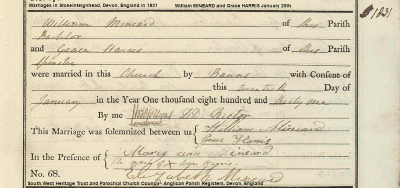 Marriages in Stokeinteignhead, Devon, England in 1831 William MINEARD and Grace HARRIS January 20th
William Mineard of this Parish
Batchelor
and Grace Harris of this Parish
Spinster
were married in this Church by Banns with Consent of
this twentieth Day of
January in the Year One thousand eight hundred and thirty one
By me DD Rector
This Marriage was solemnized between us William Mineard
Grace Harris
In the Presence of Mary Ann Mineard
No. 68. Elizabeth Mineard
$ 1831
South West Heritage Trust and Parochial Church Council- Anglican Parish Registers, Devon, England